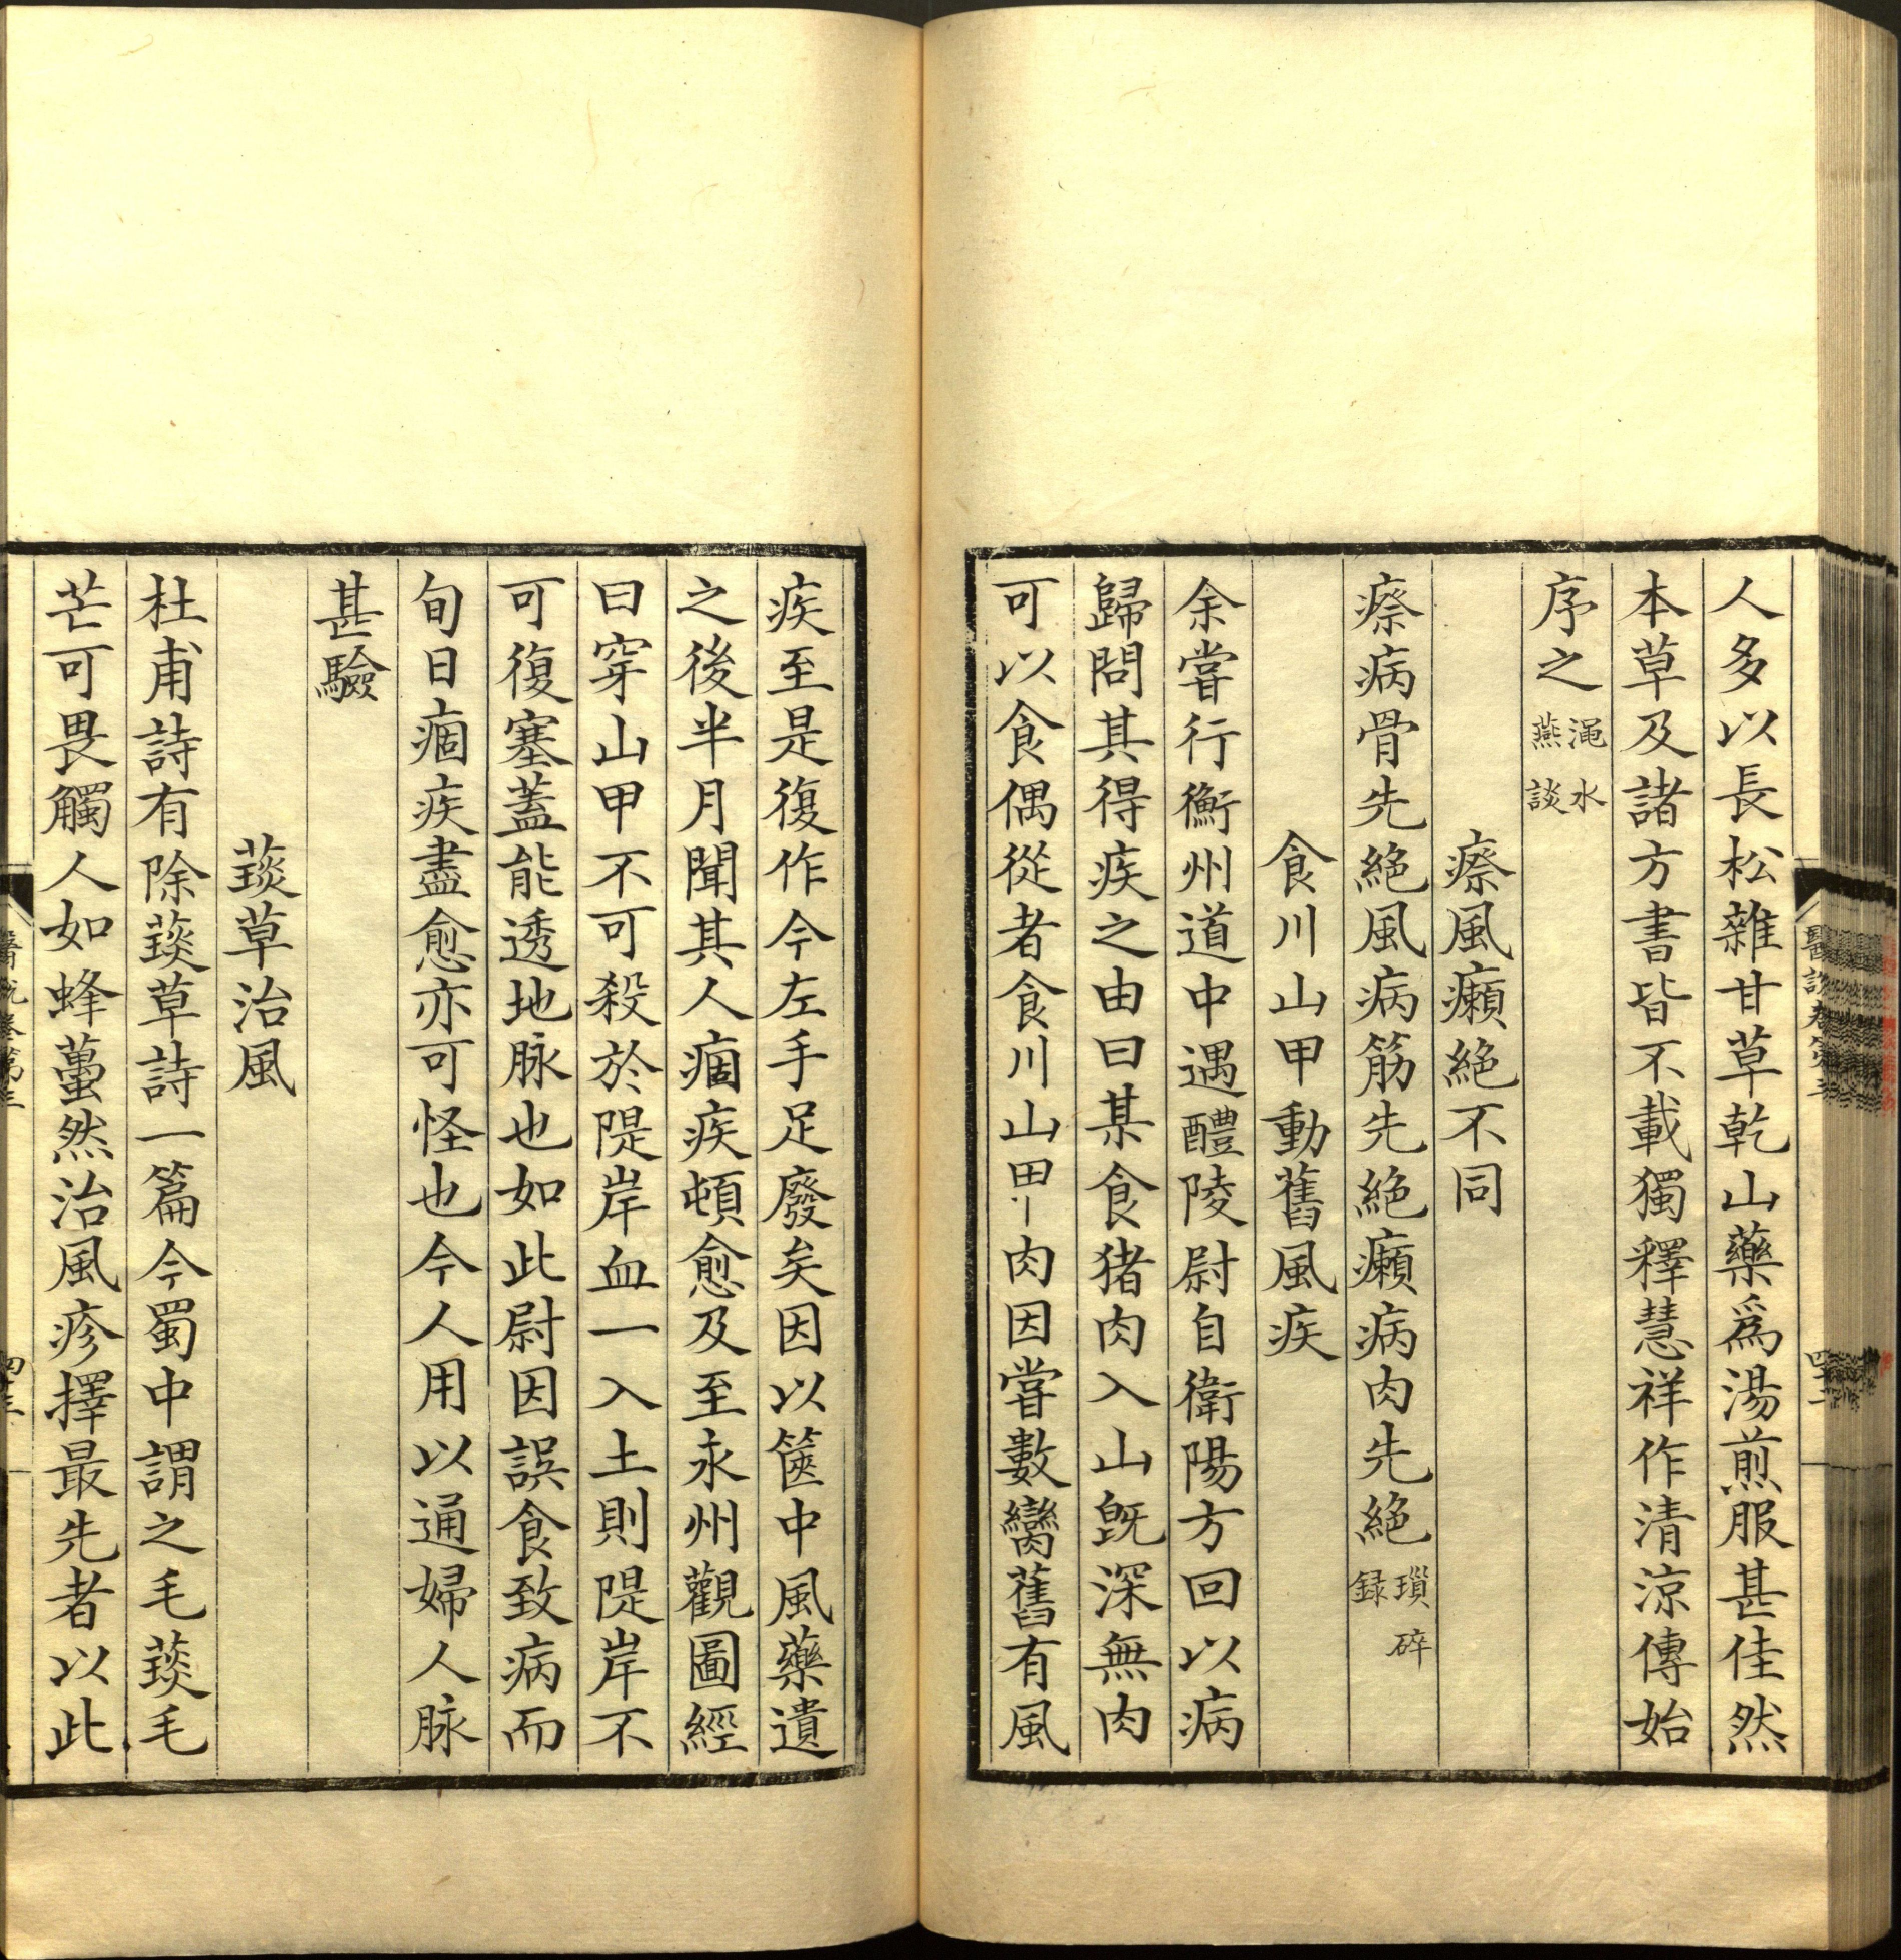 人多以長松雜甘草乾山藥爲湯煎服甚佳然
本草及諸方書皆不載獨釋慧祥作清涼傳始
序之澠水燕談
瘵風癩絶不同
瘵病骨先絶風病筋先絶癩病肉先絶瑣碎録
食川山甲動舊風疾
余嘗行衡州道中遇醴陵尉自衛陽方回以病
歸問其得疾之由曰某食猪肉入山旣深無肉
可以食偶從者食川山甲肉因嘗數臠舊有風
疾至是復作今左手足廢矣因以篋中風藥遺
之後半月聞其人痼疾頓愈及至永州觀圖經
曰穿山甲不可殺於隄岸血一入土則隄岸不
可復塞蓋能透地脉也如此尉因誤食致病而
旬日痼疾盡愈亦可怪也今人用以通婦人脉
甚驗
䕭草治風
杜甫詩有除䕭草詩一篇今蜀中謂之毛䕭毛
芒可畏觸人如蜂蠆然治風疹擇最先者以此